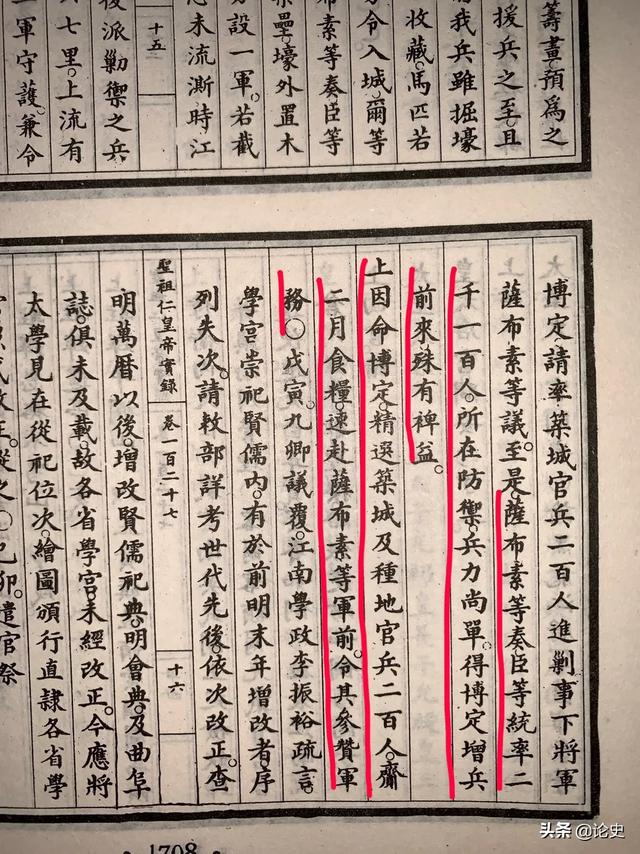 籌畫。預爲之
援兵之至。且
我兵雖掘壕
收藏。馬匹若
令入城。爾等
布素等奏臣等
壘。壕外置木
設一軍。若截
未流澌時。江
十五
後派勦禦之兵
七里。上流有
一軍守護。兼令
博定請率築城官兵二百人進剿。事下將軍
薩布素等議。至是。薩布素等奏。臣等統率二
千一百人。所在防禦。兵力尚單。得博定增兵
前來。殊有裨益。
上因命博定。精選築城及種地官兵二百人。齎
二月食糧。速赴薩布素等軍前。令其參贊軍
務○戊寅。九卿議覆。江南學政李振裕疏言。
學宮崇祀賢儒內。有於前明末年增改者。序
列失次。請敕部詳考世代先後。依次改正。查
聖祖仁皇帝實錄 卷一百二十七 十六
明萬曆以後。增改賢儒祀典。明會典。及曲阜
誌。俱未及載。故各省學宮。未經改正。今應將
太學見在從祀位次。繪圖頒行直隸各省學
從之○己卯。遣官祭
• 1708 •
头条 @论史